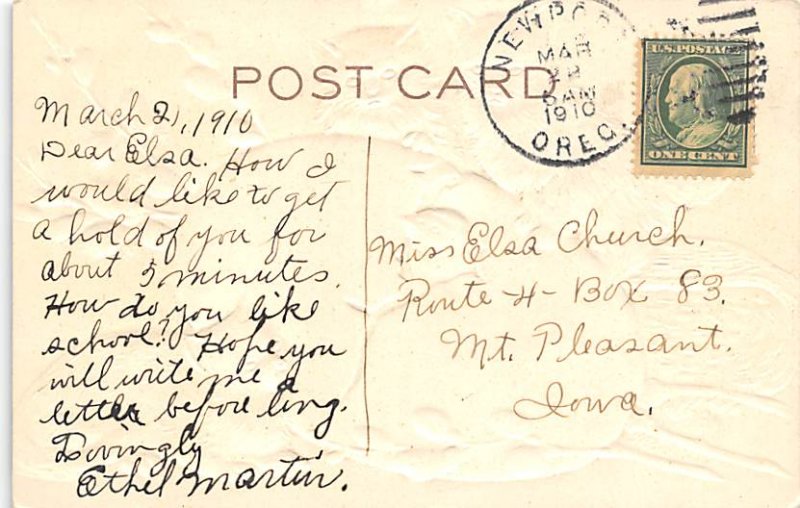 POST CARD
NEWPORT
MAR
22
6 AM
1910
OREG.
U.S. POSTAGE
ONE CENT
March 21, 1910
Dear Elsa. How I
would like to get
a hold of you for
about 5 minutes.
How do you like
school? Hope you
will write me a
letter before long.
Lovingly
Ethel Martin.
Miss Elsa Church.
Route 4- Box 83.
Mt. Pleasant.
Iowa.